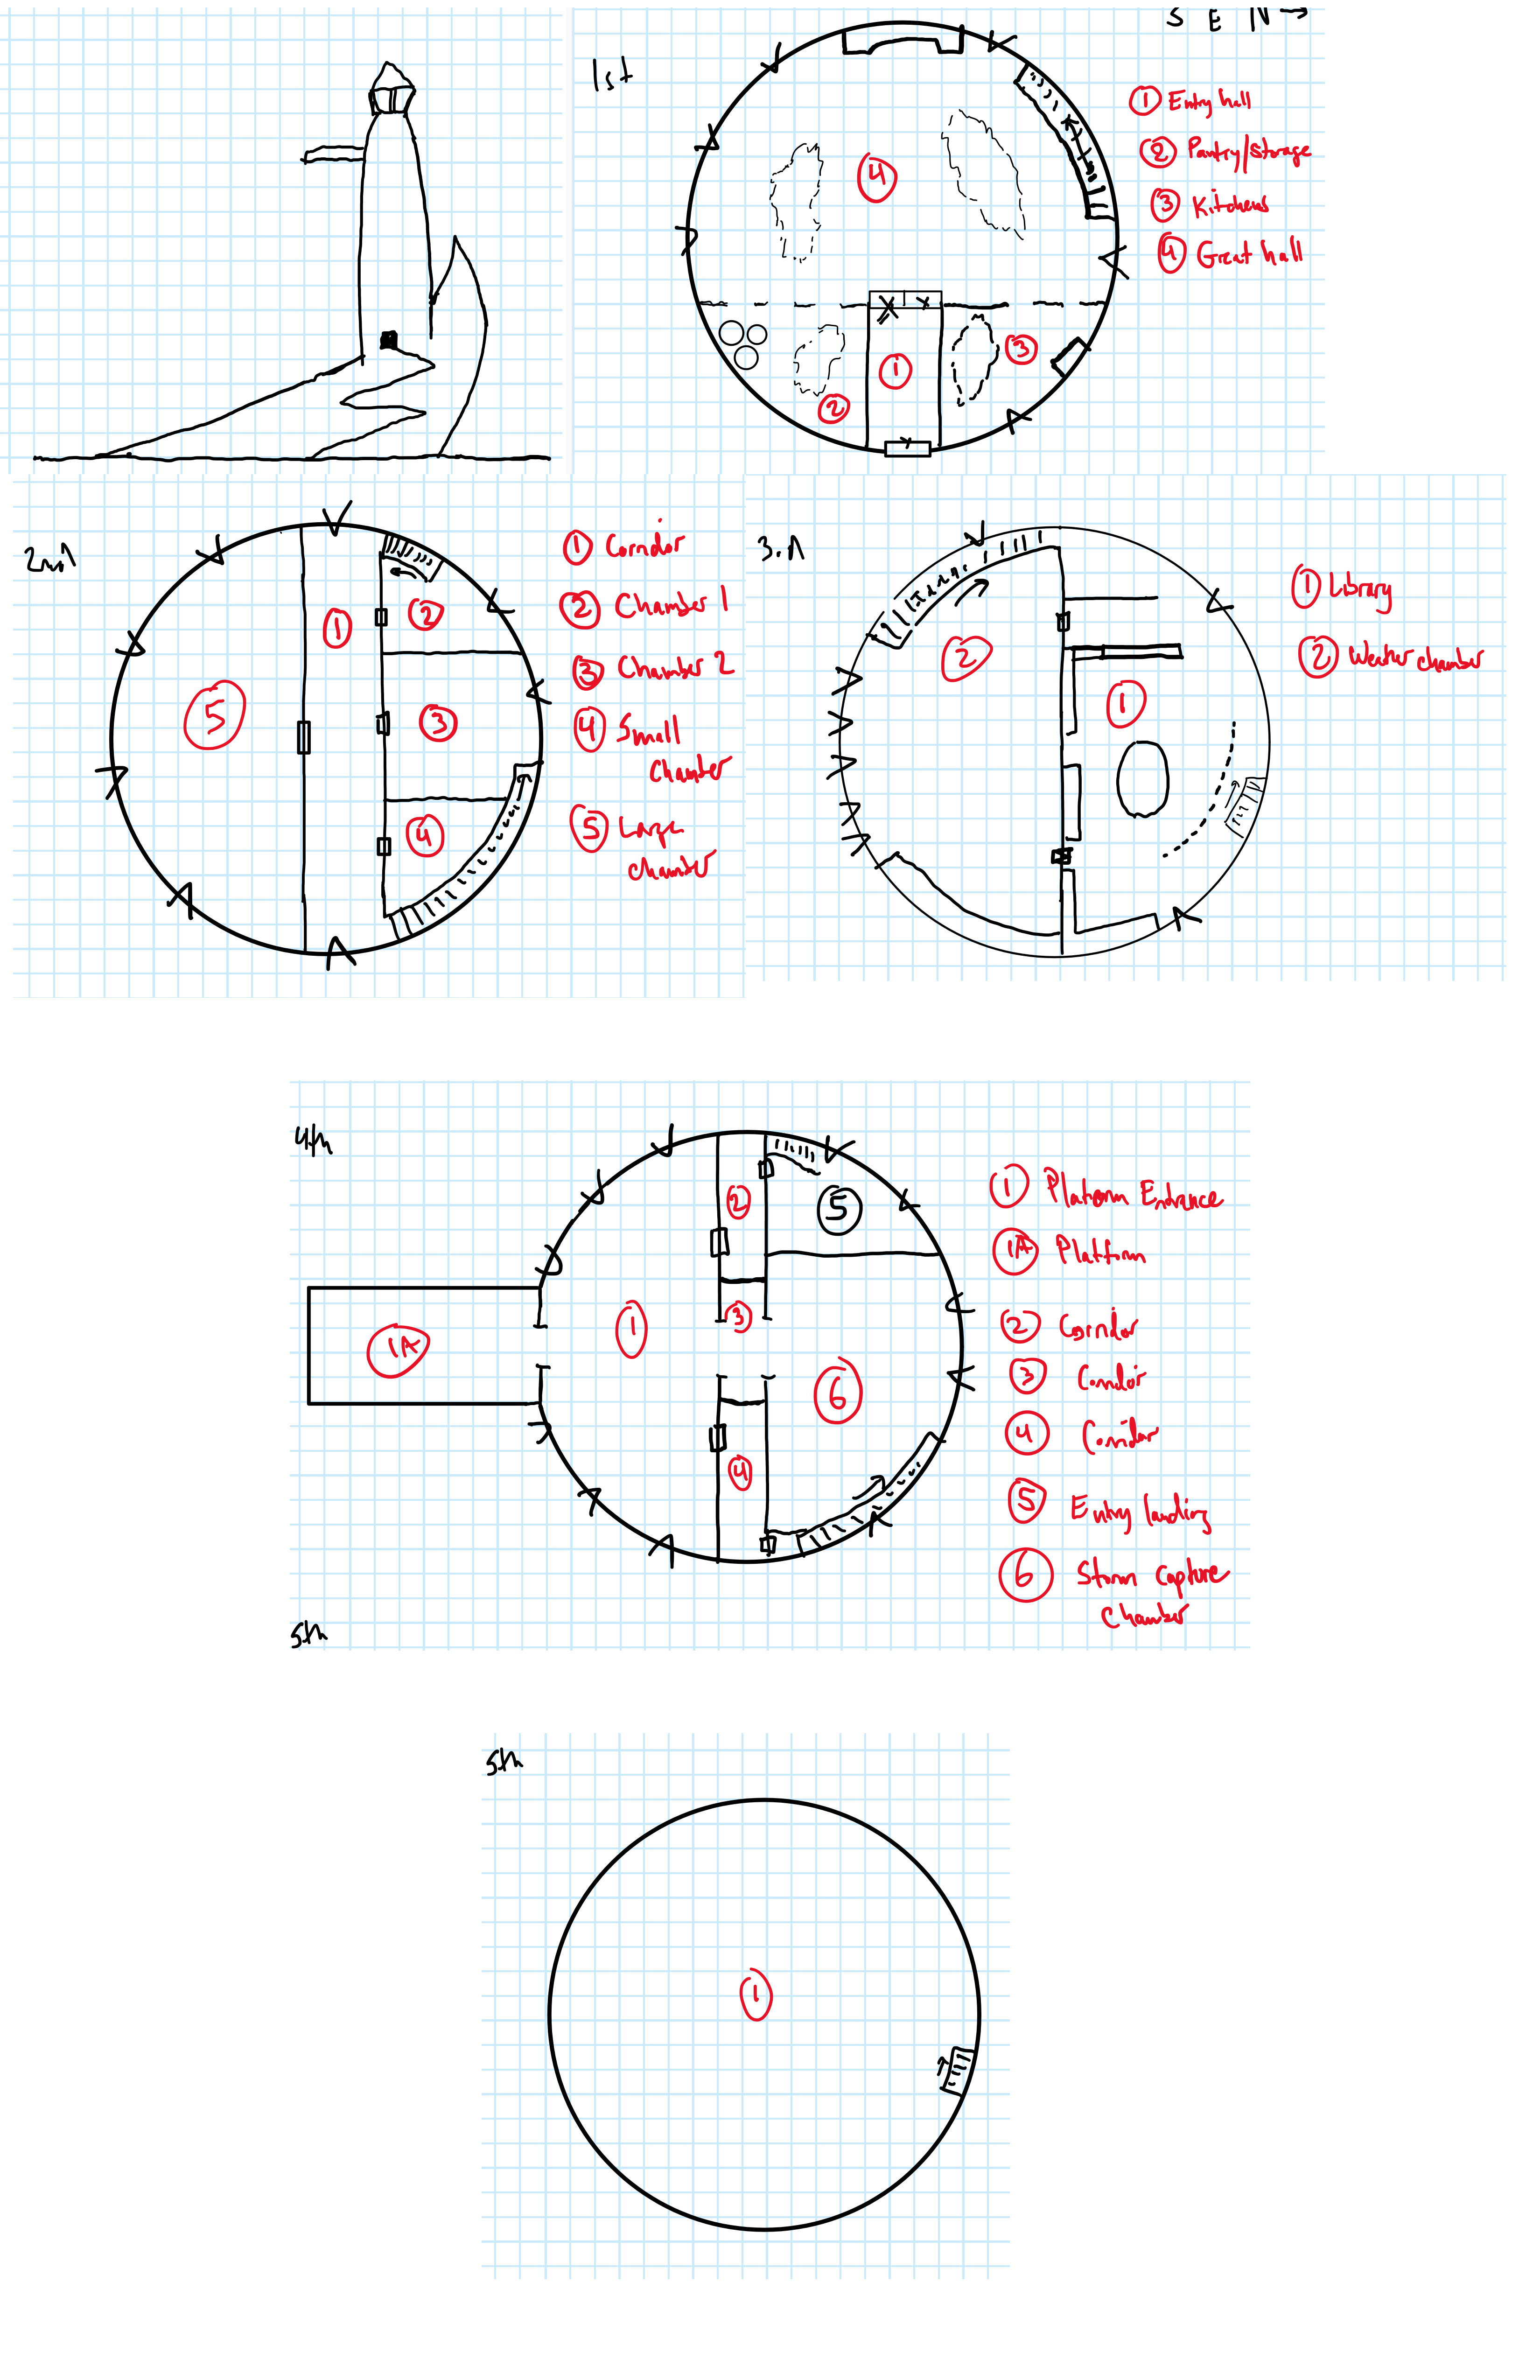 S E N →
1st
① Entry hall
② Pantry/Storage
③ Kitchens
④ Great hall
4
1
2
3
2nd
① Corridor
② Chamber 1
③ Chamber 2
④ Small
Chamber
⑤ Large
Chamber
1
2
3
4
5
3rd
① Library
② Weather chamber
2
1
4th
① Platform Entrance
1A Platform
② Corridor
③ Corridor
④ Corridor
⑤ Entry landing
⑥ Storm Capture
Chamber
2
5
1A
1
3
6
4
5th
5th
1